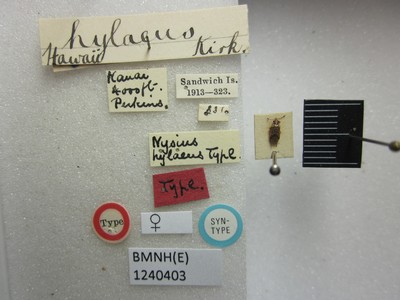 hylaeus
Hawaii Kirk.
Kauai
4000 ft.
Perkins.
Sandwich Is.
1913—323.
Nysius
hylaeus Type.
Type.
Type
♀
SYN-
TYPE
BMNH(E)
1240403